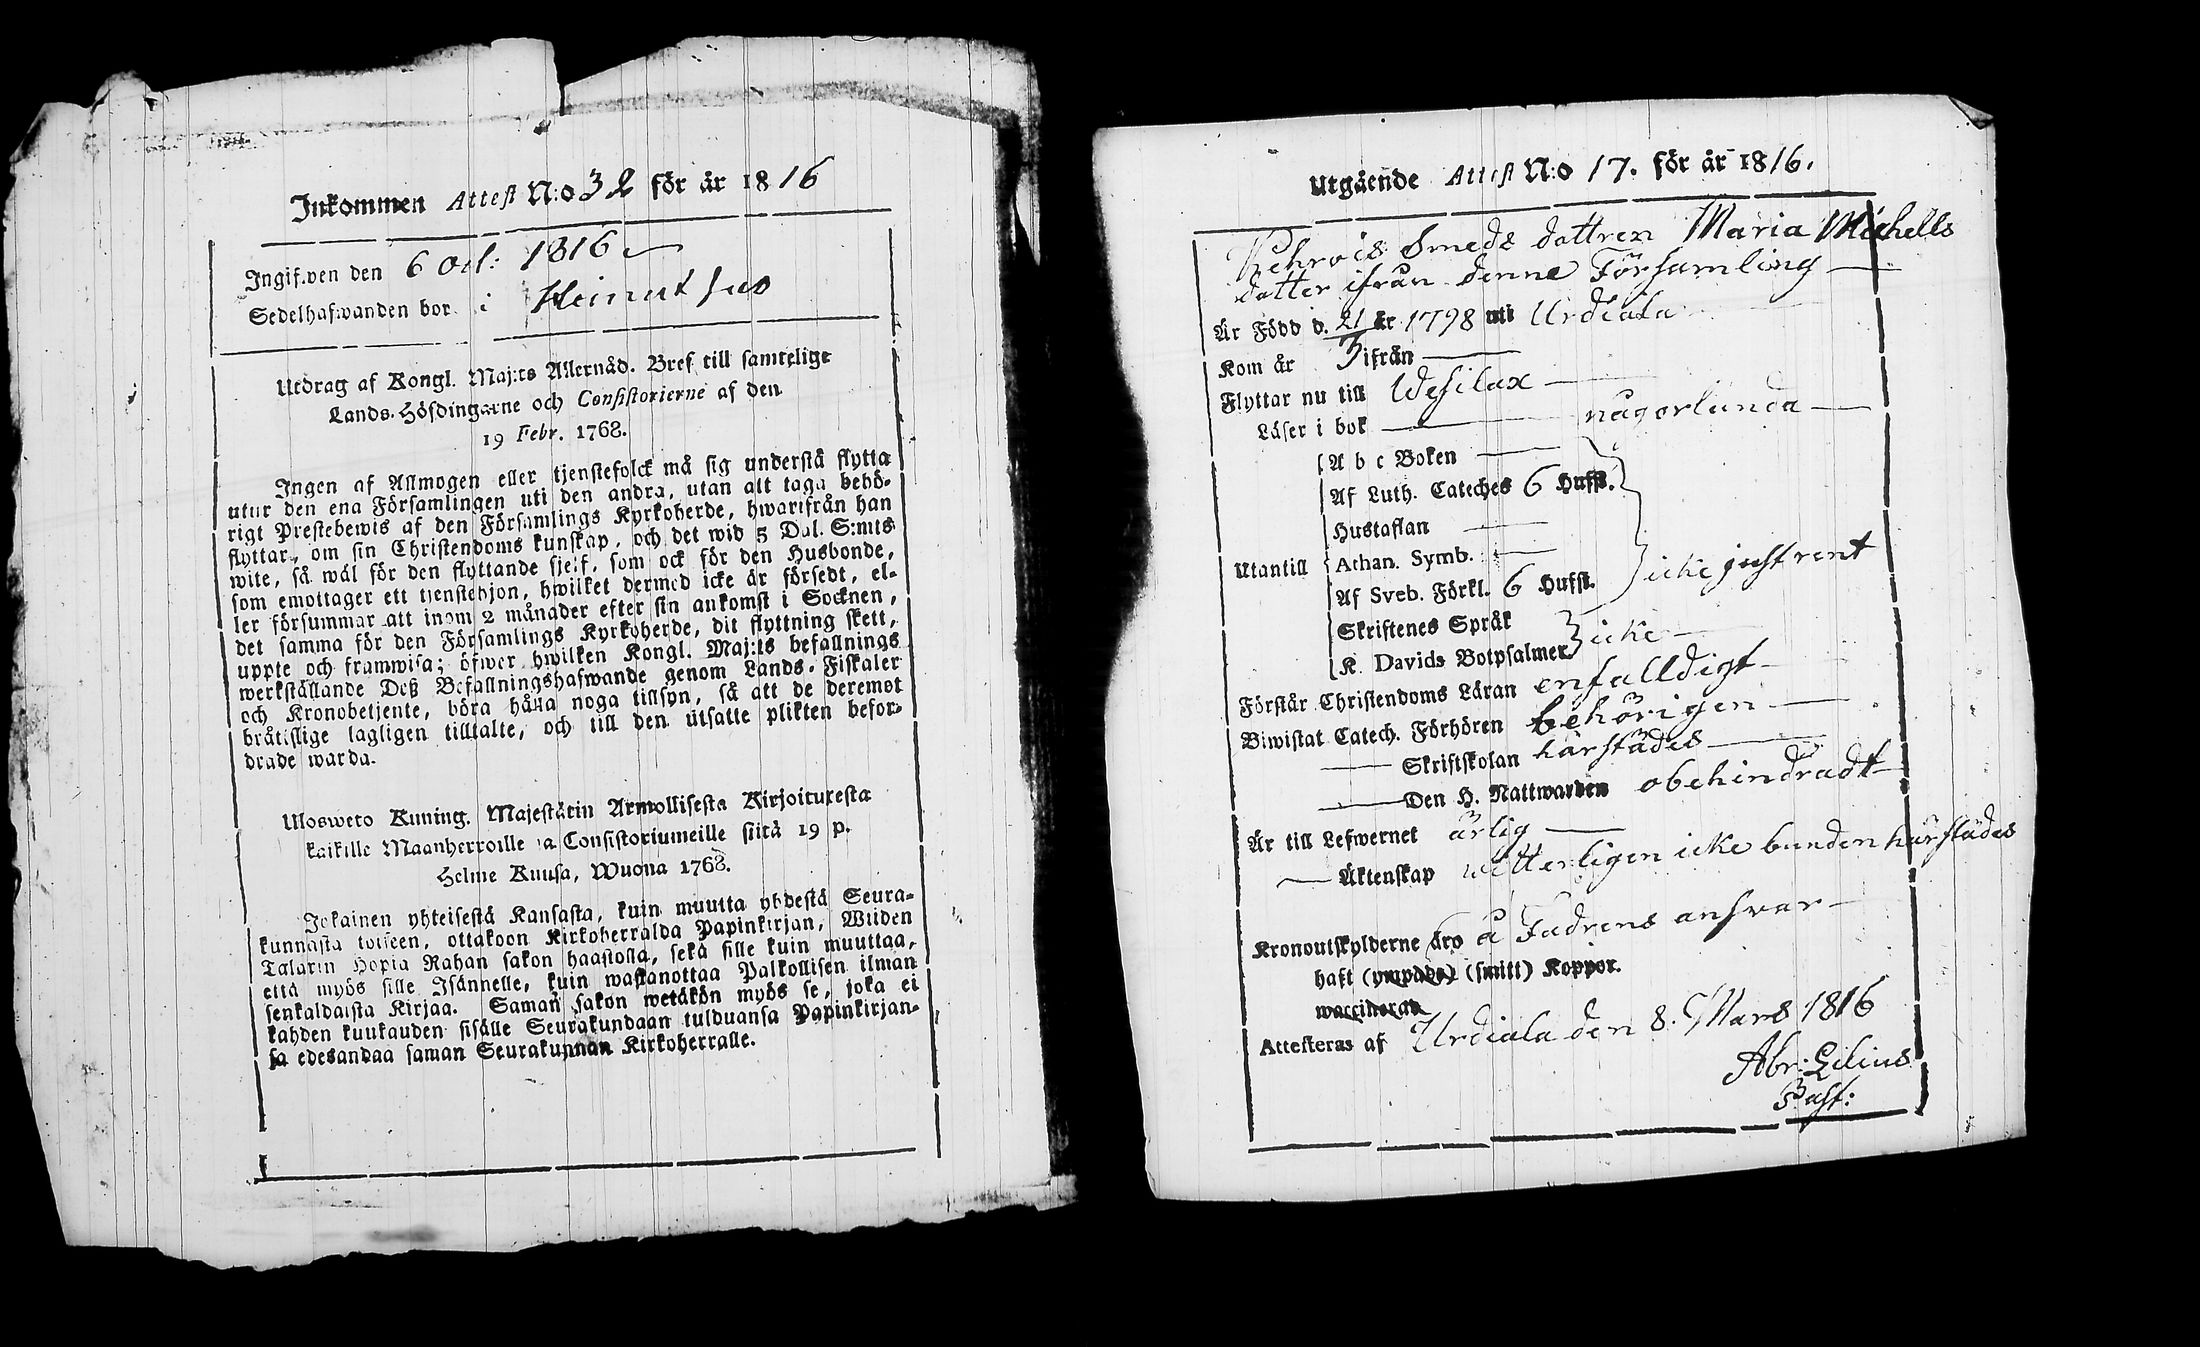 Inkommen Attest N:o 32 för år 1816
Ingifwen den 6 Oct: 1816
Sedelhafwanden bor i Heinut
Utdrag af Kongl. Maj:ts Allernåd. Bref till samtelige
Lands-Höfdingarne och Consistorierne af den
19 Febr. 1768.
Ingen af Allmogen eller tjenstefolck må sig understå flytta
utur den ena Församlingen uti den andra, utan att taga behö-
rigt Prestebewis af den Församlings Kyrkoherde, hwarifrån han
flyttar, om sin Christendoms kunskap, och det wid 5 Dal. S:mts
wite, så wäl för den flyttande sjelf, som ock för den Husbonde,
som emottager ett tjenstehjon, hwilket dermed icke är försedt, el-
ler försummar att inom 2 månader efter sin ankomst i Socknen,
det samma för den Församlings Kyrkoherde, dit flyttning skett,
uppte och framwisa; öfwer hwilken Kongl. Maj:ts befallnings
werkställande Deß Befallningshafwande genom Lands-Fiskaler
och Kronobetjente, böra hålla noga tillsyn, så att de deremot
bråtislige lagligen tilltalte, och till den utsatte plikten befor-
drade warda.
Ulosweto Kuning. Majestätin Armollisesta Kirjoituresta
kaikille Maanherroille ja Consistoriumeille siitä 19 p.
Helme Kuusa, Wuona 1768.
Jokainen yhteisestä Kansasta, kuin muutta yhdestä Seura-
kunnasta toiseen, ottakoon Kirkoherralda Papinkirjan, Wiiden
Talarin Hopia Rahan sakon haastolla, sekä sille kuin muuttaa,
että myös sille Isännelle, kuin wastanottaa Palkollisen ilman
senkaldaista Kirjaa. Saman sakon wetäkön myös se, joka ei
kahden kuukauden sisälle Seurakundaan tulduansa Papinkirjan-
sa edesandaa saman Seurakunnan Kirkoherralle.
Utgående Attest N:o 17. för år 1816.
Kehrois Smeds dottren Maria Michells
dotter ifrån denne Församling
Är Född d. 21 är 1798 uti Urdiala
Kom år ifrån
Flyttar nu till Wesilax
Läser i bok någorlunda
Utantill
A b c Boken
Af Luth. Cateches 6 Hufst.
Hustaflan
Athan. Symb.
Af Sveb. Förkl. 6 Hufst. icke just rent
Skriftenes Språk
K. Davids Botpsalmer icke
Förstår Christendoms Läran enfalldigt
Biwistat Catech. Förhören behörigen
Skriftskolan härstädes
Den H. Nattwarden obehindradt
Är till Lefwernet ärlig
Äktenskap witterligen icke bunden härstädes
Kronoutskylderne äro å Fadrens answar
haft (ympade) (smitt) Koppor.
waccinerad
Attesteras af Urdiala den 8. Mars 1816
Abr: Lilius
Past: